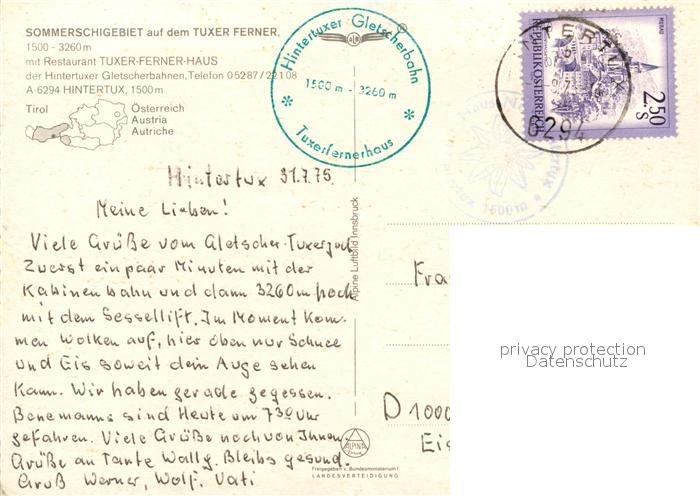 SOMMERSCHIGEBIET auf dem TUXER FERNER,
1500 - 3260 m
mit Restaurant TUXER-FERNER-HAUS
der Hintertuxer Gletscherbahnen, Telefon 05287/22108
A-6294 HINTERTUX, 1500 m
Tirol
Österreich
Austria
Autriche
Hintertuxer Gletscherbahn
1500 m - 3260 m
Tuxerfernerhaus
REPUBLIK ÖSTERREICH
MURAU
2.50
S
6294
1500 m
Hintertux 31.7.75.
Meine Lieben!
Viele Grüße vom Gletscher-Tuxerjoch
Zuerst ein paar Minuten mit der
Kabinenbahn und dann 3260m hoch
mit dem Sessellift. Im Moment kom-
men Wolken auf, hier oben nur Schnee
und Eis soweit dein Auge sehen
kann. Wir haben gerade gegessen.
Benemanns sind Heute um 7 30 Uhr
gefahren. Viele Grüße noch von Ihnen.
Grüße an Tante Wally. Bleibs gesund.
Gruß Werner, Wolf. Vati
Alpine Luftbild Innsbruck
Fra
D 1000
Eis
ALPINA
Freigegeben v. Bundesministerium f.
LANDESVERTEIDIGUNG
privacy protection
Datenschutz